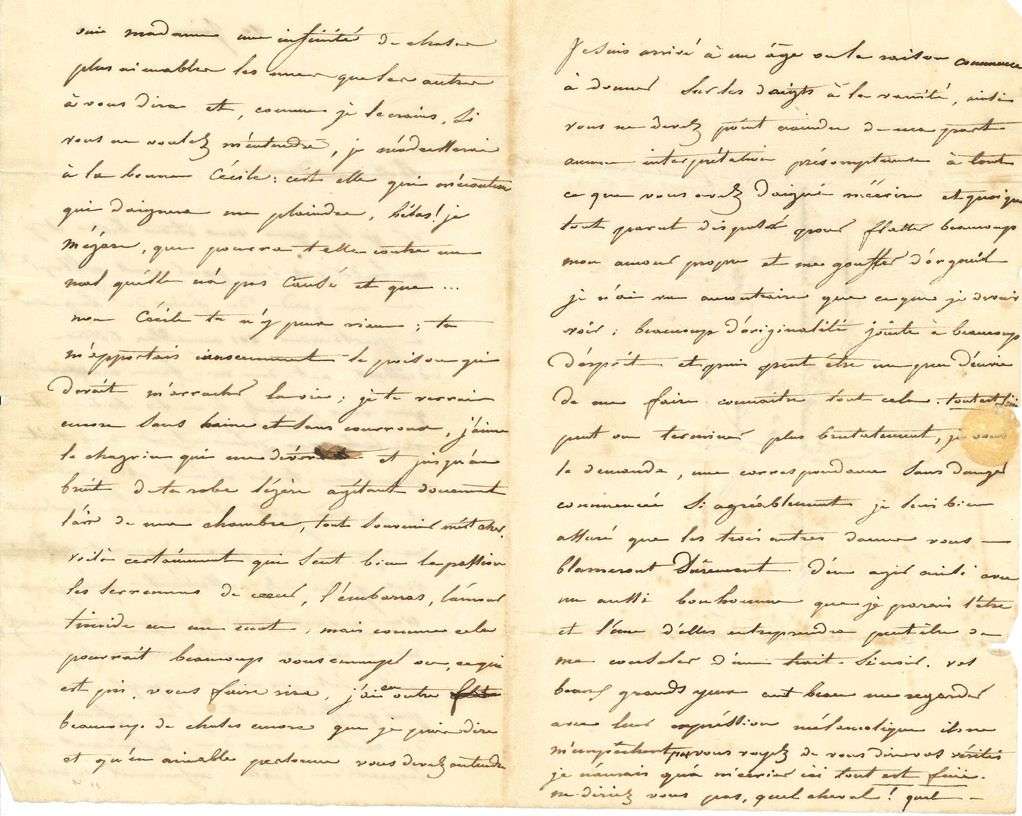 voir madame une infinité de choses
plus aimables les unes que les autres
à vous dire et, comme je le crains, si
vous ne voulez m'entendre, je m'adresserai
à la bonne Cécile : c'est elle qui m'écoutera
qui daignera me plaindre, hélas! je
m'égare, que pourra t'elle contre un
mal qu'elle n'a pas causé et que ...
non Cécile tu n'y peux rien ; tu
m'apportais innocemment le poison qui
devait m'arracher la vie ; je te verrai
encore sans haine et sans courroux, j'aime
le chagrin qui me et jusqu'au
bruit de ta robe légère agitant doucement
l'air de ma chambre, tout souvenir m'est cher.
voilà certainement qui sent bien la passion
les serremens de coeur, l'embarras, l'amour
timide en un mot ; mais comme cela
pourrait beaucoup vous ennuyer ou, ce qui
est pis, vous faire rire, j'ai en outre
beaucoup de choses encore que je puis dire
et qu'en aimable personne vous devez entendre
Je suis arrivé à un âge ou la raison commence
à donner sur les doigts à la vanité, ainsi
vous ne devez point craindre de ma part
aucune interprétation présomptueuse à tout
ce que vous avez daigné m'écrire et quoique
tout parut disposé pour flatter beaucoup
mon amour propre et me gonfler d'orgueil
je n'ai vu au contraire que ce que je devais
voir : beaucoup d'originalité jointe à beaucoup
d'esprit et puis peut être un peu d'envie
de me faire connaitre tout cela. tout est fini
peut on terminer plus brutalement, je vous
le demande, une correspondance sans danger
commencée si agréablement je suis bien
assuré que les trois autres dames vous
blameront Durement d'en agir ainsi avec
un aussi bonhomme que je parais l'être
et l'une d'elles entreprendra peut être de
me consoler d'un trait si noir. vos
beaux grands yeux ont beau me regarder
avec leur expréssion mélancolique ils ne
m'empêchent pas vous voyez de vous dire vos vérités
je n'aurais qu'à m'écrier ici tout est fini.
me diriez vous pas, quel cheval! quel